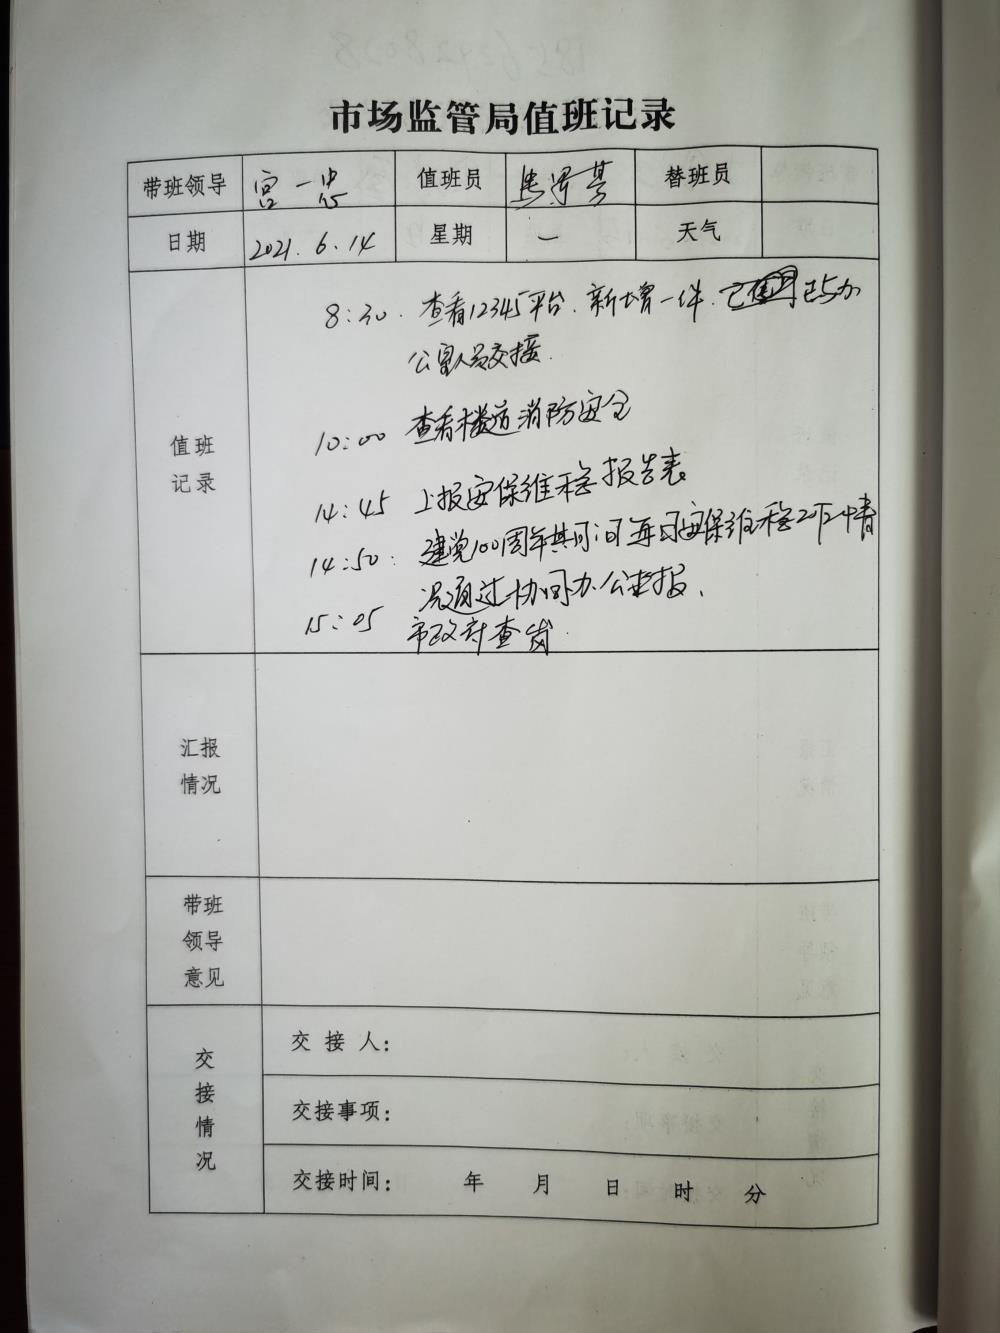 市场监管局值班记录
带班领导 宫一忠 值班员 替班员
日期 2021.6.14 星期 一 天气
值班
记录
8:30. 查看12345平台.新增一件.已 已与办
公室人员交接.
10:00 查看楼道消防安全
14:45 上报安保维稳报告表
14:50. 建党100周年其间每日安保维稳工作情
况通过协同办公上报.
15:05 市政府查岗.
汇报
情况
带班
领导
意见
交接情况
交接人:
交接事项:
交接时间: 年 月 日 时 分